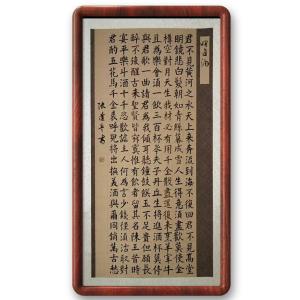 將進酒
君不見黃河之水天上來奔流到海不復回君不見高堂
明鏡悲白髮朝如青絲暮成雪人生得意須盡歡莫使金
樽空對月天生我材必有用千金散盡還復來烹羊宰牛
且為樂會須一飲三百杯岑夫子丹丘生將進酒杯莫停
與君歌一曲請君為我傾耳聽鐘鼓饌玉不足貴但願長
醉不復醒古來聖賢皆寂寞惟有飲者留其名陳王昔時
宴平樂斗酒十千恣歡謔主人何為言少錢徑須沽取對
君酌五花馬千金裘呼兒將出換美酒與爾同銷萬古愁
書